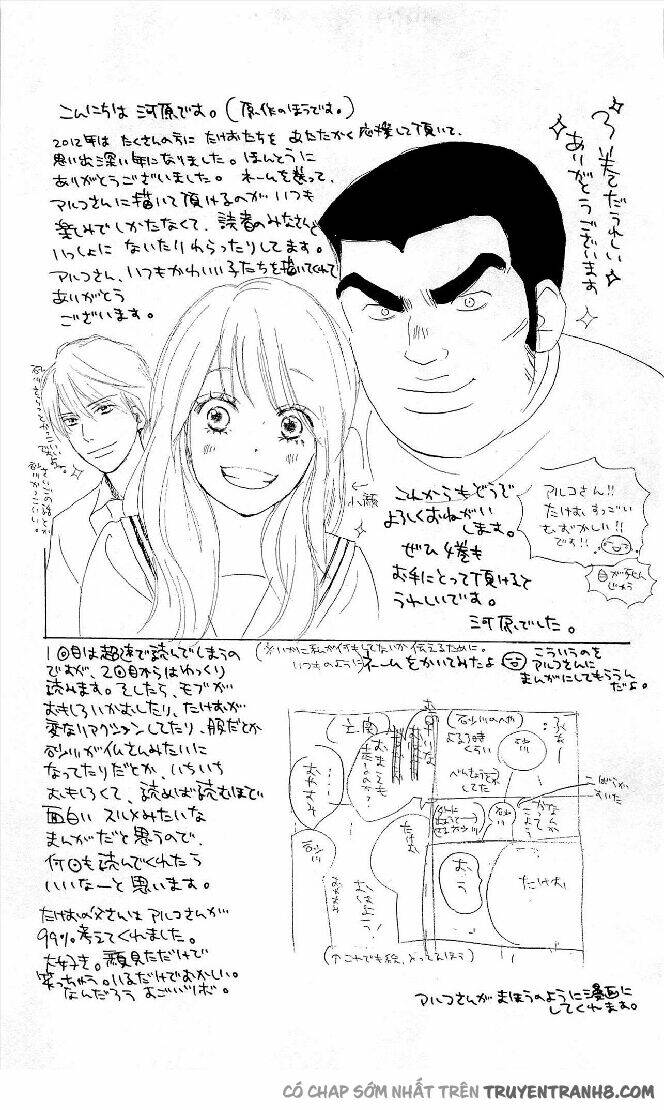 こんにちは 河原です。(原作のほうです。)
2012年は たくさんの方に たけおたちを あたたかく 応援して頂いて、
思い出深い年になりました。ほんとうに
ありがとうございました。 ネームを送って、
アルコさんに描いて頂けるのが いつも
楽しみでしかたなくて、読者のみなさんと
いっしょに ないたりわらったりしてます。
アルコさん、いつもかわいい子たちを描いてくれて
ありがとう
ございます。
3巻でだうれしい
ありがとうございます
←
小顔
これからもどうぞ
よろしくおねがい
します。
ぜひ 4巻も
お手にとって頂けると
うれしいです。
河原でした。
アルコさん!!
たけお すっごい
むずかしい!!
です!!
1回目は超速で読んでしまうの
ですが、2回目からはゆっくり
読みます。そしたら、モブが
おもしろいかおしたり、たけおが
変なリアクションしてたり、服だとか
砂川が仏さんみたいに
なってたりだとか、いちいち
おもしろくて、読めば読むほど
面白い スルメみたいな
まんがだと思うので、
何回も読んでくれたら
いいなーと思います。
たけおの父さんは アルコさんが
99%考えてくれました。
大好き。顔見ただけで
笑っちゃう。いるだけでおかしい。
なんだろう あごいいば。
いつものように ネームをかいてみたよ
こういうのを
アルコさんに
まんがにしてもらうん
だよ。
砂川のへや
よる9時
くらい
べんきょうとか
してた
砂川
たけお
おう
たけお
おはよう!
砂川
おやすみ
(↑これでも絵、とってるほう)
アルコさんが まほうのように漫画に
してくれます。
CÓ CHAP SỚM NHẤT TRÊN TRUYENTRANH8.COM